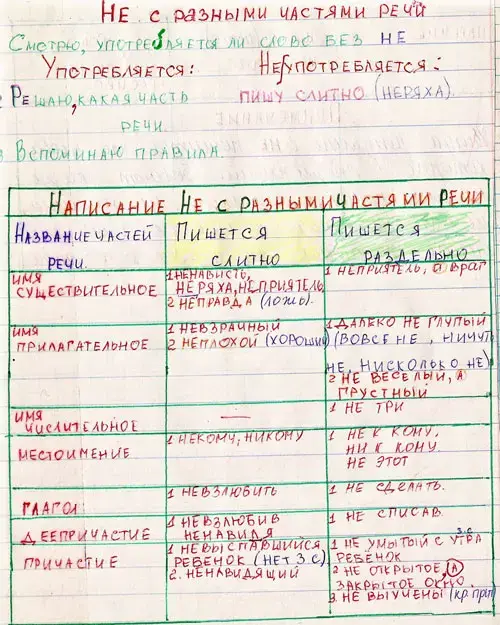 Не с разными частями речи
Смотрю, употребляется ли слово без не
Употребляется: Не употребляется:
Решаю, какая часть пишу слитно (неряха).
речи.
Вспоминаю правила.
Написание Не с разными частями речи
Название частей речи.
Пишется слитно
Пишется раздельно
имя существительное
1 ненависть,
неряха, неприятель
2 неправда (ложь).
1 не приятель, а враг
имя прилагательное
1 невзрачный
2 неплохой (хороший)
1 далеко не глупый
(вовсе не, ничуть
не, нисколько не)
2 не веселый, а
грустный
имя числительное
—
1 не три
местоимение
1 некому, никому
1 не к кому,
ни к кому.
не этот
глагол
1 невзлюбить
1 не сделать.
деепричастие
1 невзлюбив
ненавидя
1 не списав
причастие
1 невыспавшийся
ребенок (нет З.С)
2. ненавидящий
1 не умытый с утра З.С
ребенок
2 не открытое, а
закрытое окно.
3. не выучены (кр. прич)